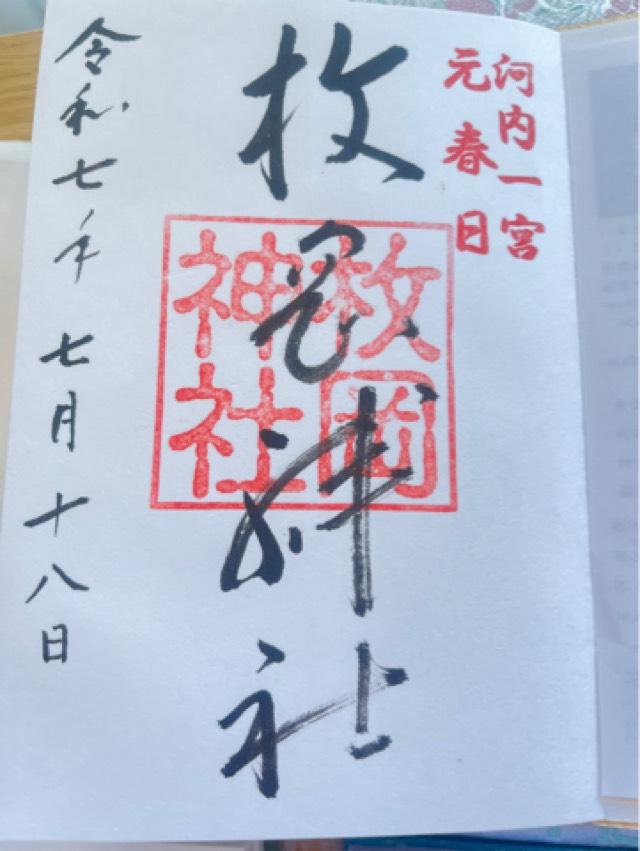 河内一宮
元春日
枚岡神社
枚岡
神社
令和七年七月十八日